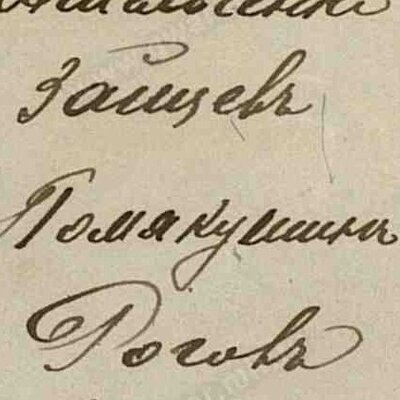 Зайцевъ
Помякушинъ
Роговъ